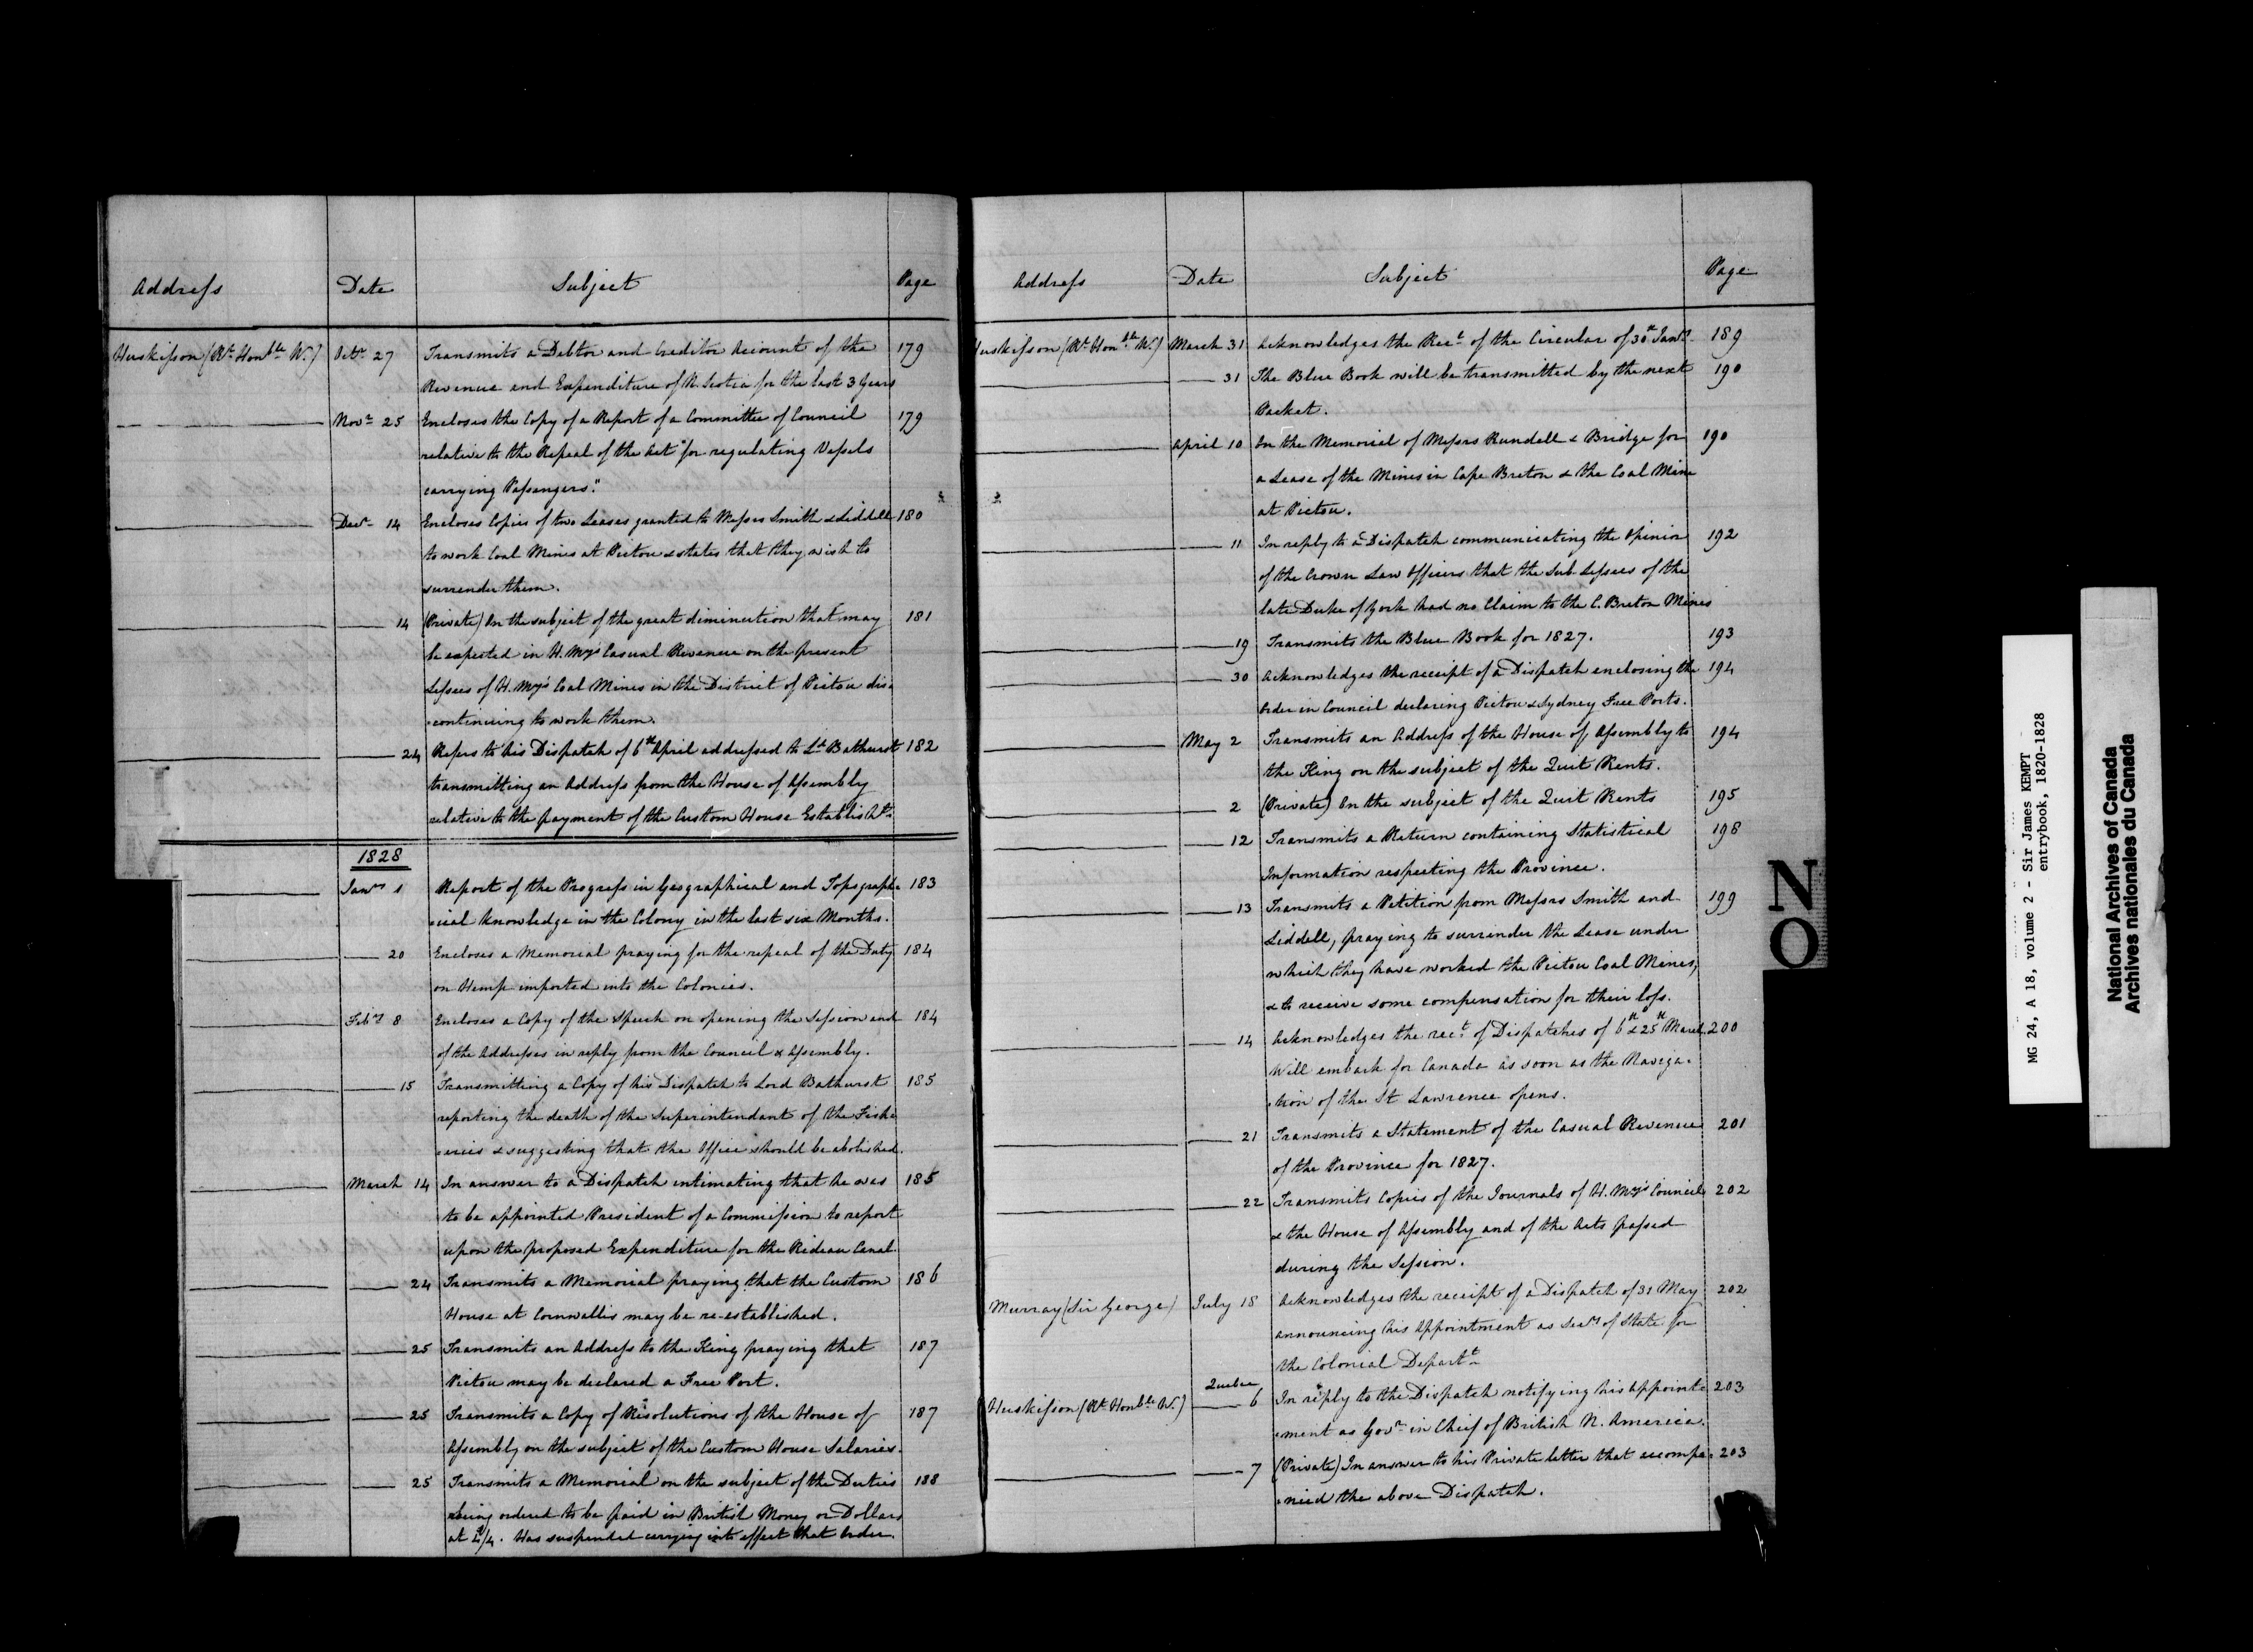 Address Date Subject Page
Huskisson (Rt. Honble. W.) Octr. 27 Transmits a Debtor and Creditor Account of the 179
Revenue and Expenditure of N. Scotia for the last 3 Years
Novr. 25 Encloses the Copy of a Report of a Committee of Council 179
relative to the Repeal of the Act "for regulating Vessels
carrying Passengers."
Decr. 14 Encloses Copies of two Leases granted to Messrs Smith & Liddell 180
to work Coal Mines at Pictou & states that they wish to
surrender them.
14 (Private) On the subject of the great diminution that may 181
be expected in H. My's Casual Revenue on the present
Lessees of H. My's Coal Mines in the District of Pictou dis-
-continuing to work them.
24 Refers to his Dispatch of 6th April addressed to Ld. Bathurst 182
transmitting an Address from the House of Assembly
relative to the payment of the Custom House Establisht.
1828
Jany. 1 Report of the Progress in Geographical and Topograph- 183
-ical knowledge in the Colony in the last six Months.
20 Encloses a Memorial praying for the repeal of the Duty 184
on Hemp imported into the Colonies.
Feby. 8 Encloses a Copy of the Speech on opening the Session and 184
of the Addresses in reply from the Council & Assembly.
15 Transmitting a Copy of his Dispatch to Lord Bathurst 185
reporting the death of the Superintendant of the Fish-
-eries & suggesting that the Office should be abolished.
March 14 In answer to a Dispatch intimating that he was 185
to be appointed President of a Commission to report
upon the proposed Expenditure for the Rideau Canal.
24 Transmits a Memorial praying that the Custom 186
House at Cornwallis may be re-established.
25 Transmits an Address to the King praying that 187
Pictou may be declared a Free Port.
25 Transmits a Copy of Resolutions of the House of 187
Assembly on the subject of the Custom House Salaries.
25 Transmits a Memorial on the subject of the Duties 188
being ordered to be paid in British Money or Dollars
at 4/4. Has suspended carrying into effect that Order.
Address Date Subject Page
Huskisson (Rt. Honble. W.) March 31 Acknowledges the Rect. of the Circular of 30th Jany. 189
31 The Blue Book will be transmitted by the next 190
Packet.
April 10 On the Memorial of Messrs Rundell & Bridge for 190
a Lease of the Mines in Cape Breton & the Coal Mine
at Pictou.
11 In reply to a Dispatch communicating the Opinion 192
of the Crown Law Officers that the Sub Lessees of the
late Duke of York had no Claim to the C. Breton Mines
19 Transmits the Blue Book for 1827. 193
30 Acknowledges the receipt of a Dispatch enclosing the 194
Order in Council declaring Pictou & Sydney Free Ports.
May 2 Transmits an Address of the House of Assembly to 194
the King on the subject of the Quit Rents.
2 (Private) On the subject of the Quit Rents 195
12 Transmits a Return containing Statistical 198
Information respecting the Province.
13 Transmits a Petition from Messrs Smith and 199
Liddell, praying to surrender the Lease under
which they have worked the Pictou Coal Mines,
& to receive some compensation for their loss.
14 Acknowledges the rect. of Dispatches of 6th & 25th March. 200
Will embark for Canada as soon as the Naviga-
-tion of the St Lawrence opens.
21 Transmits a Statement of the Casual Revenue 201
of the Province for 1827.
22 Transmits Copies of the Journals of H. My's Council 202
& the House of Assembly and of the Acts passed
during the Session.
Murray (Sir George) July 18 Acknowledges the receipt of a Dispatch of 31 May 202
announcing his Appointment as Secy. of State for
the Colonial Departt.
Quebec
Huskisson (Rt. Honble. W.) 6 In reply to the Dispatch notifying his appoint- 203
-ment as Govr. in Chief of British N. America.
7 (Private) In answer to his Private letter that accompa- 203
-nied the above Dispatch.
NO
MG 24, A 18, volume 2 - Sir James KEMPT
entrybook, 1820-1828
National Archives of Canada
Archives nationales du Canada